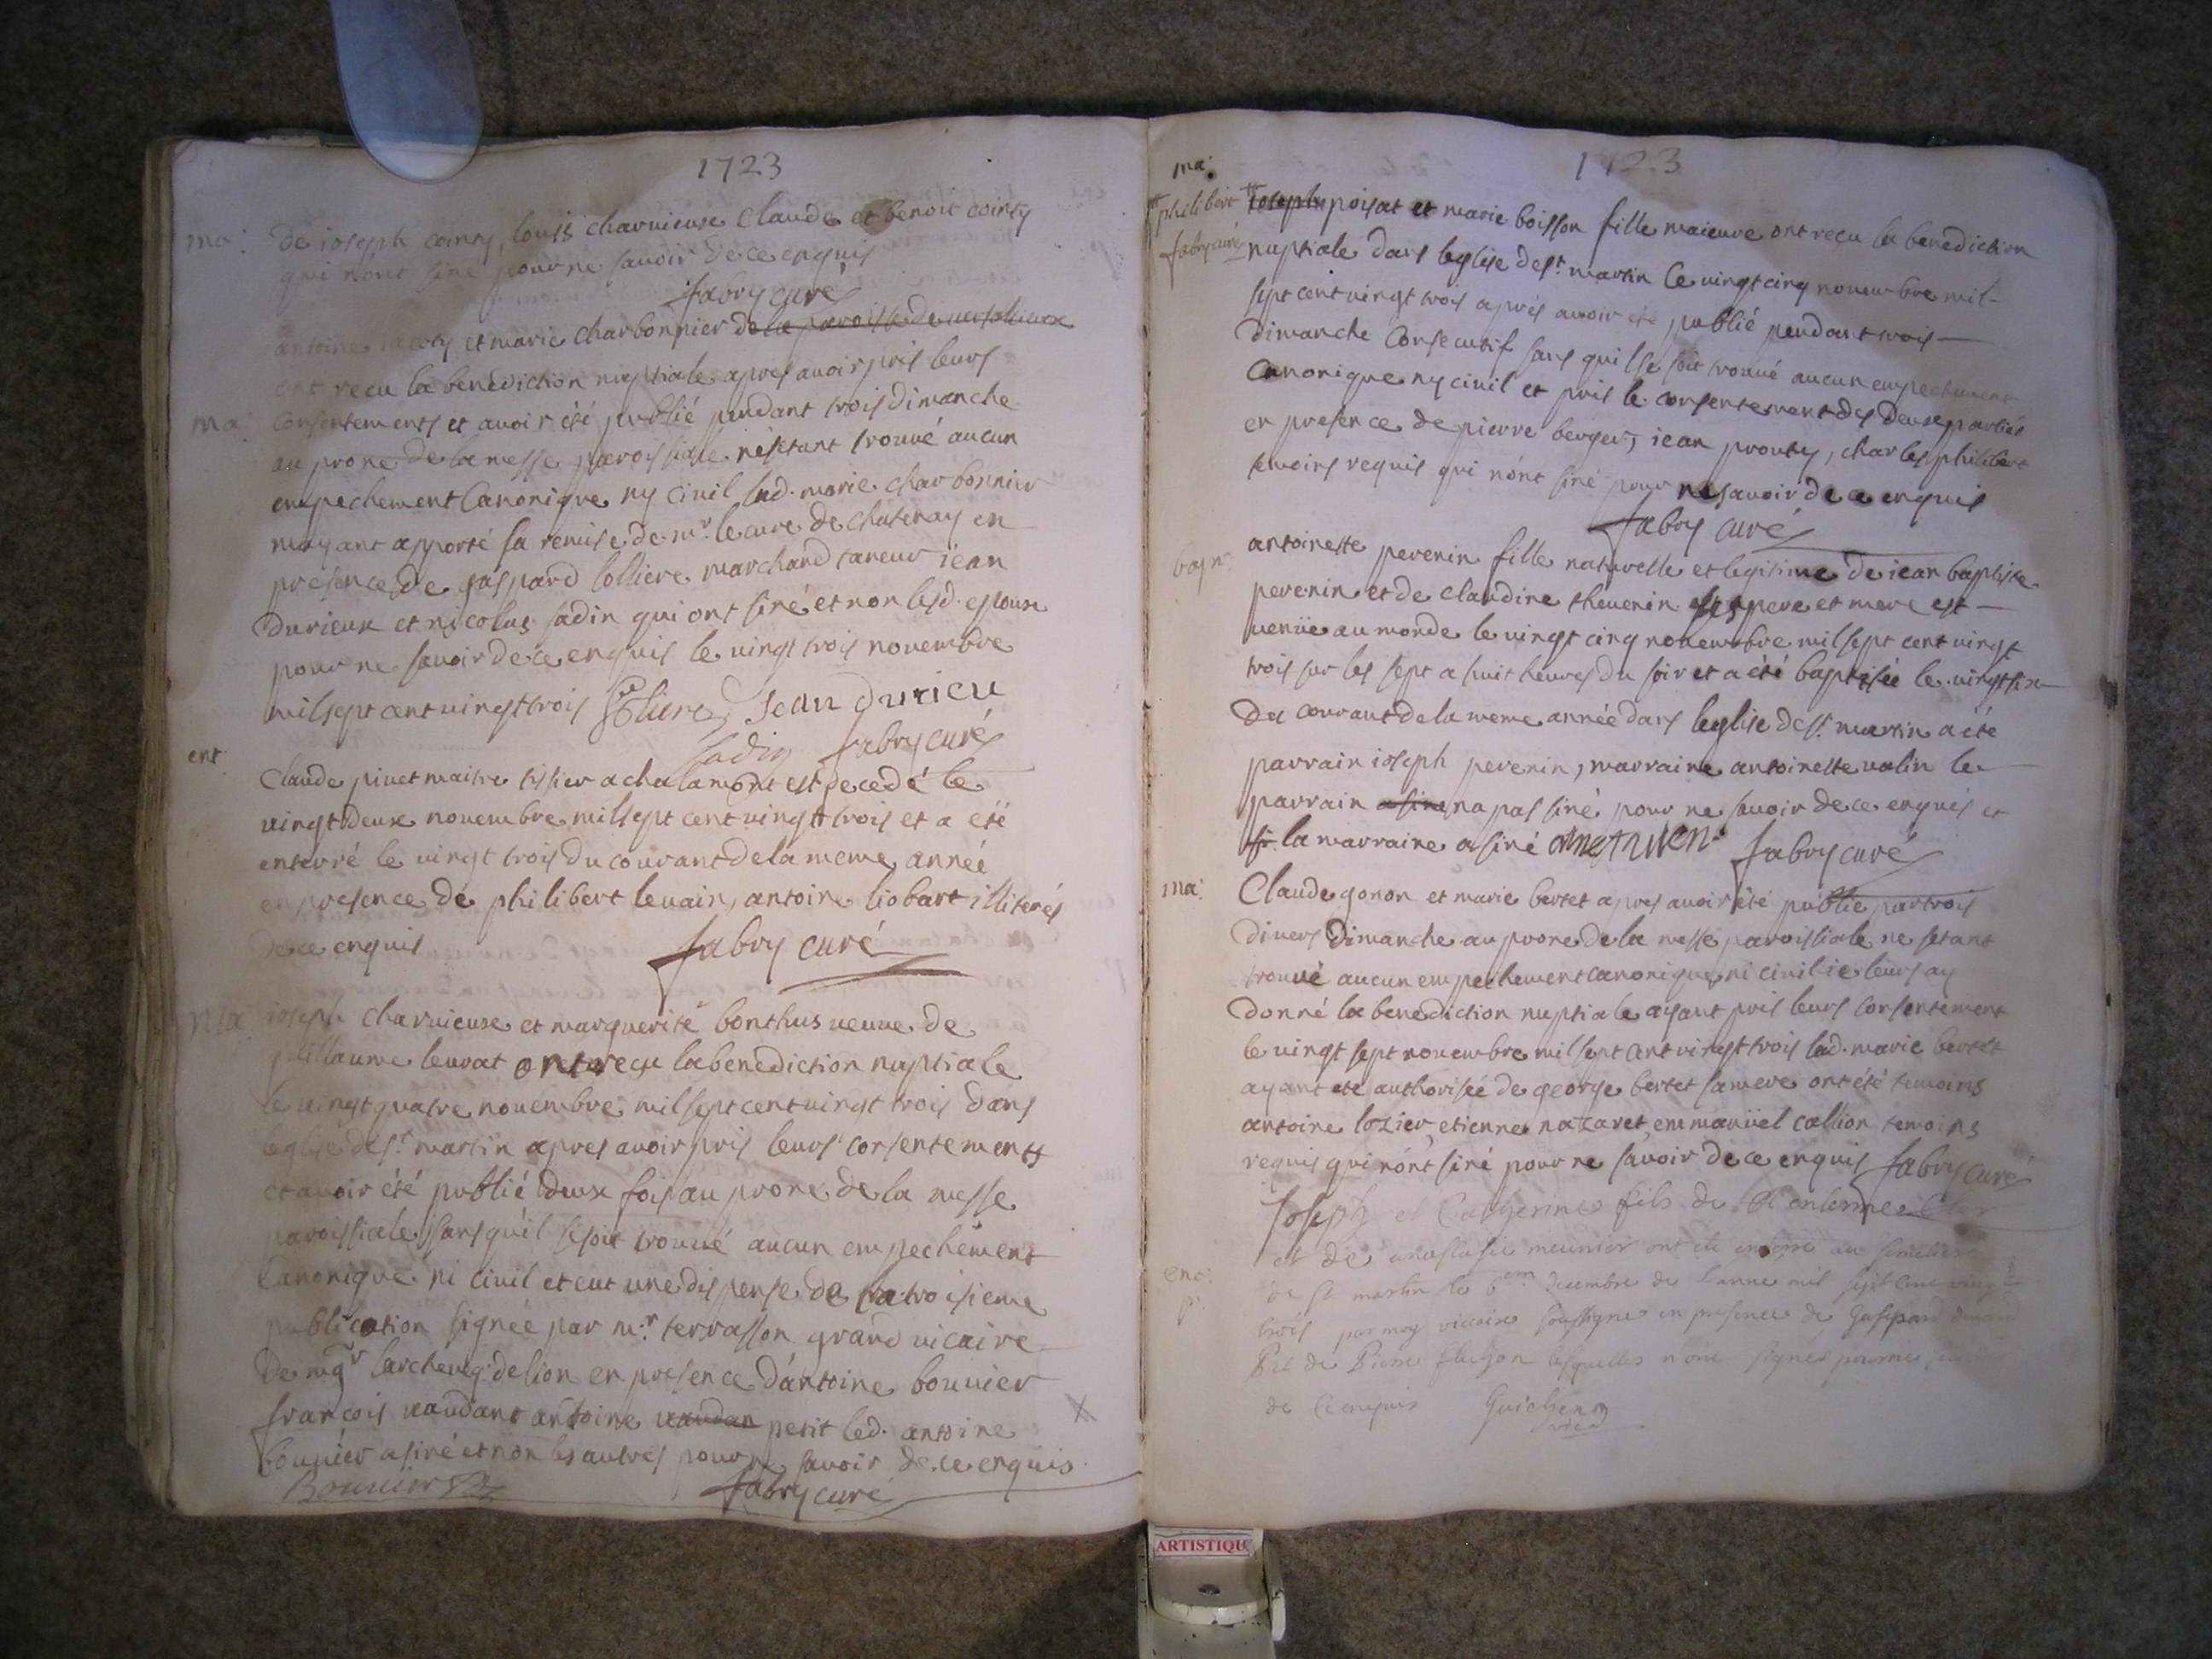 1723
ma: de ioseph cointy, louis charuieux claude et benoit cointy
qui nónt siné pour ne sauoir de ce enquis
fabry curé
antoine et marie charbonnier de la paroisse de
ont recu la benediction nuptiale apres auoir pris leurs
ma consentements et auoir été publié pendant trois dimanche
au prone de la messe paroissiale nésetant trouué aucun
empechement Canonique ny ciuil lad. marie charbonnier
mayant apporté sa remise de mr. le cure de chatenay en
presence de gaspard lolliere marchand taneur iean
Durieux et nicolas sadin qui ont siné et non lesd. espoux
pour ne sauoir de ce enquis le uingt trois nouembre
mil sept cent uingt trois Jean durieu
sadin fabry curé
ent: Claude piuet maitre tissier a chalamont est decedé le
uingt deux nouembre mil sept cent uingt trois et a été
enterré le uingt trois du courant de la meme année
en presence de philibert leuain, antoine liobart illiterés
de ce enquis fabry curé
ma ioseph charuieux et marguerite bonthus ueuue de
guillaume leurat ont recu la benediction nuptiale
le uingt quatre nouembre mil sept cent uingt trois dans
leglise de st. martin apres auoir pris leurs consentements
et auoir été publié deux fois au prone de la messe
paroissiale sans quil se soit trouué aucun empechement
Canonique ni ciuil et eut une dispense de la troisieme
publication signée par mr. terrasson grand uicaire
De mgr larcheueq: de lion en presence dántoine bouuier
francois uaudant antoine uaudan petit led. antoine
bouuier a siné et non les autres pour ne sauoir de ce enquis
Bouuier fabry curé
1723
ma:
philibert ioseph poisat et marie boisson fille maieure ont reçu la benediction
fabry curé nuptiale dans leglise de st. martin le uingt cinq nouembre mil
sept cent uingt trois aprés auoir été publié pendant trois
dimanche Consecutif sans quil se soit trouué aucun empechement
Canonique ny ciuil et pris le consentement des deux parties
en presence de pierre berger, iean prouty, charles philibert
temoins requis qui nónt siné pour ne sauoir de ce enquis
fabry curé
bap: antoinette perenin fille naturelle et legitime de iean baptiste
perenin et de claudine theuenin ses pere et mere est
uenüe au monde le uingt cinq nouembre mil sept cent uingt
trois sur les sept a huit heures du soir et a été baptisée le uingt six
du courant de la meme année dans leglise de st. martin a été
parrain ioseph perenin, marraine antoinette ualin le
parrain a siné na pas siné pour ne sauoir de ce enquis et
la marraine a siné fabry curé
ma: Claude gonon et marie bertet apres auoir été publie par trois
diuers Dimanche au prone de la messe paroissiale ne setant
trouué aucun empechement canonique ni ciuil ie leurs ay
donné la benediction nuptiale ayant pris leurs consentement
le uingt sept nouembre mil sept cent uingt trois lad. marie bertet
ayant été authorisée de george bertet ont été temoins
antoine lozier, etienne nazaret, emmanüel callion temoins
requis qui nónt siné pour ne sauoir de ce enquis fabry curé
Joseph et Catherine fils de
et de anastasie meunier ont été enterré au
enc: de st martin le 6 decembre de lanne mil sept cent uingt
trois par moy vicaire soussigné en presence de Gaspard
de Pierre lesquelles n'ont signés pour ne
de ce enquis Guichenon